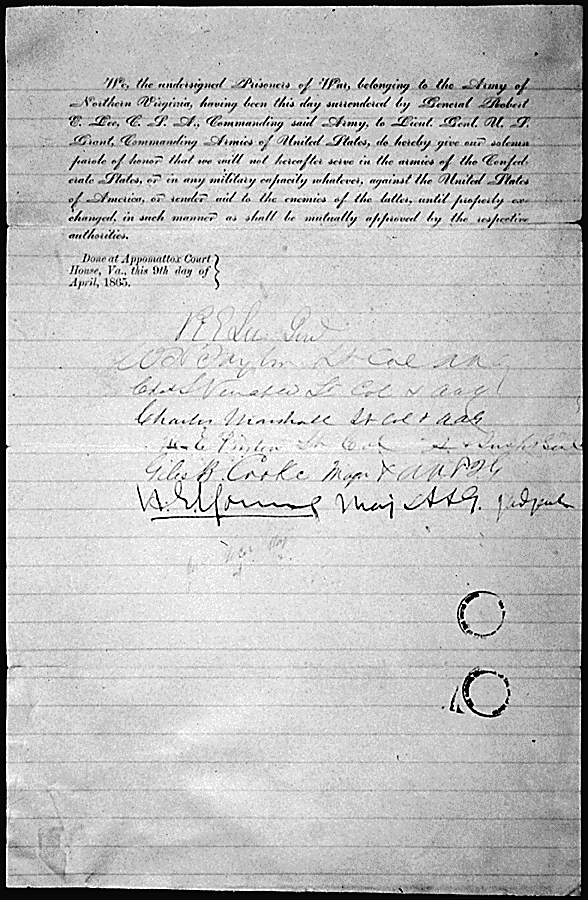 We, the undersigned Prisoners of War, belonging to the Army of
Northern Virginia, having been this day surrendered by General Robert
E. Lee, C. S. A., Commanding said Army, to Lieut. Genl. U. S.
Grant, Commanding Armies of United States, do hereby give our solemn
parole of honor that we will not hereafter serve in the armies of the Confed-
erate States, or in any military capacity whatever, against the United States
of America, or render aid to the enemies of the latter, until properly ex-
changed, in such manner as shall be mutually approved by the respective
authorities.
Done at Appomattox Court
House, Va., this 9th day of
April, 1865.
R E Lee Genl
W H Taylor Lt Col AAG
Chas S Venable Lt Col & AAG
Charles Marshall Lt Col & AAG
H E Peyton Lt Col &
Giles B. Cooke Major & AAIG
H. E. Young Maj. AAG.